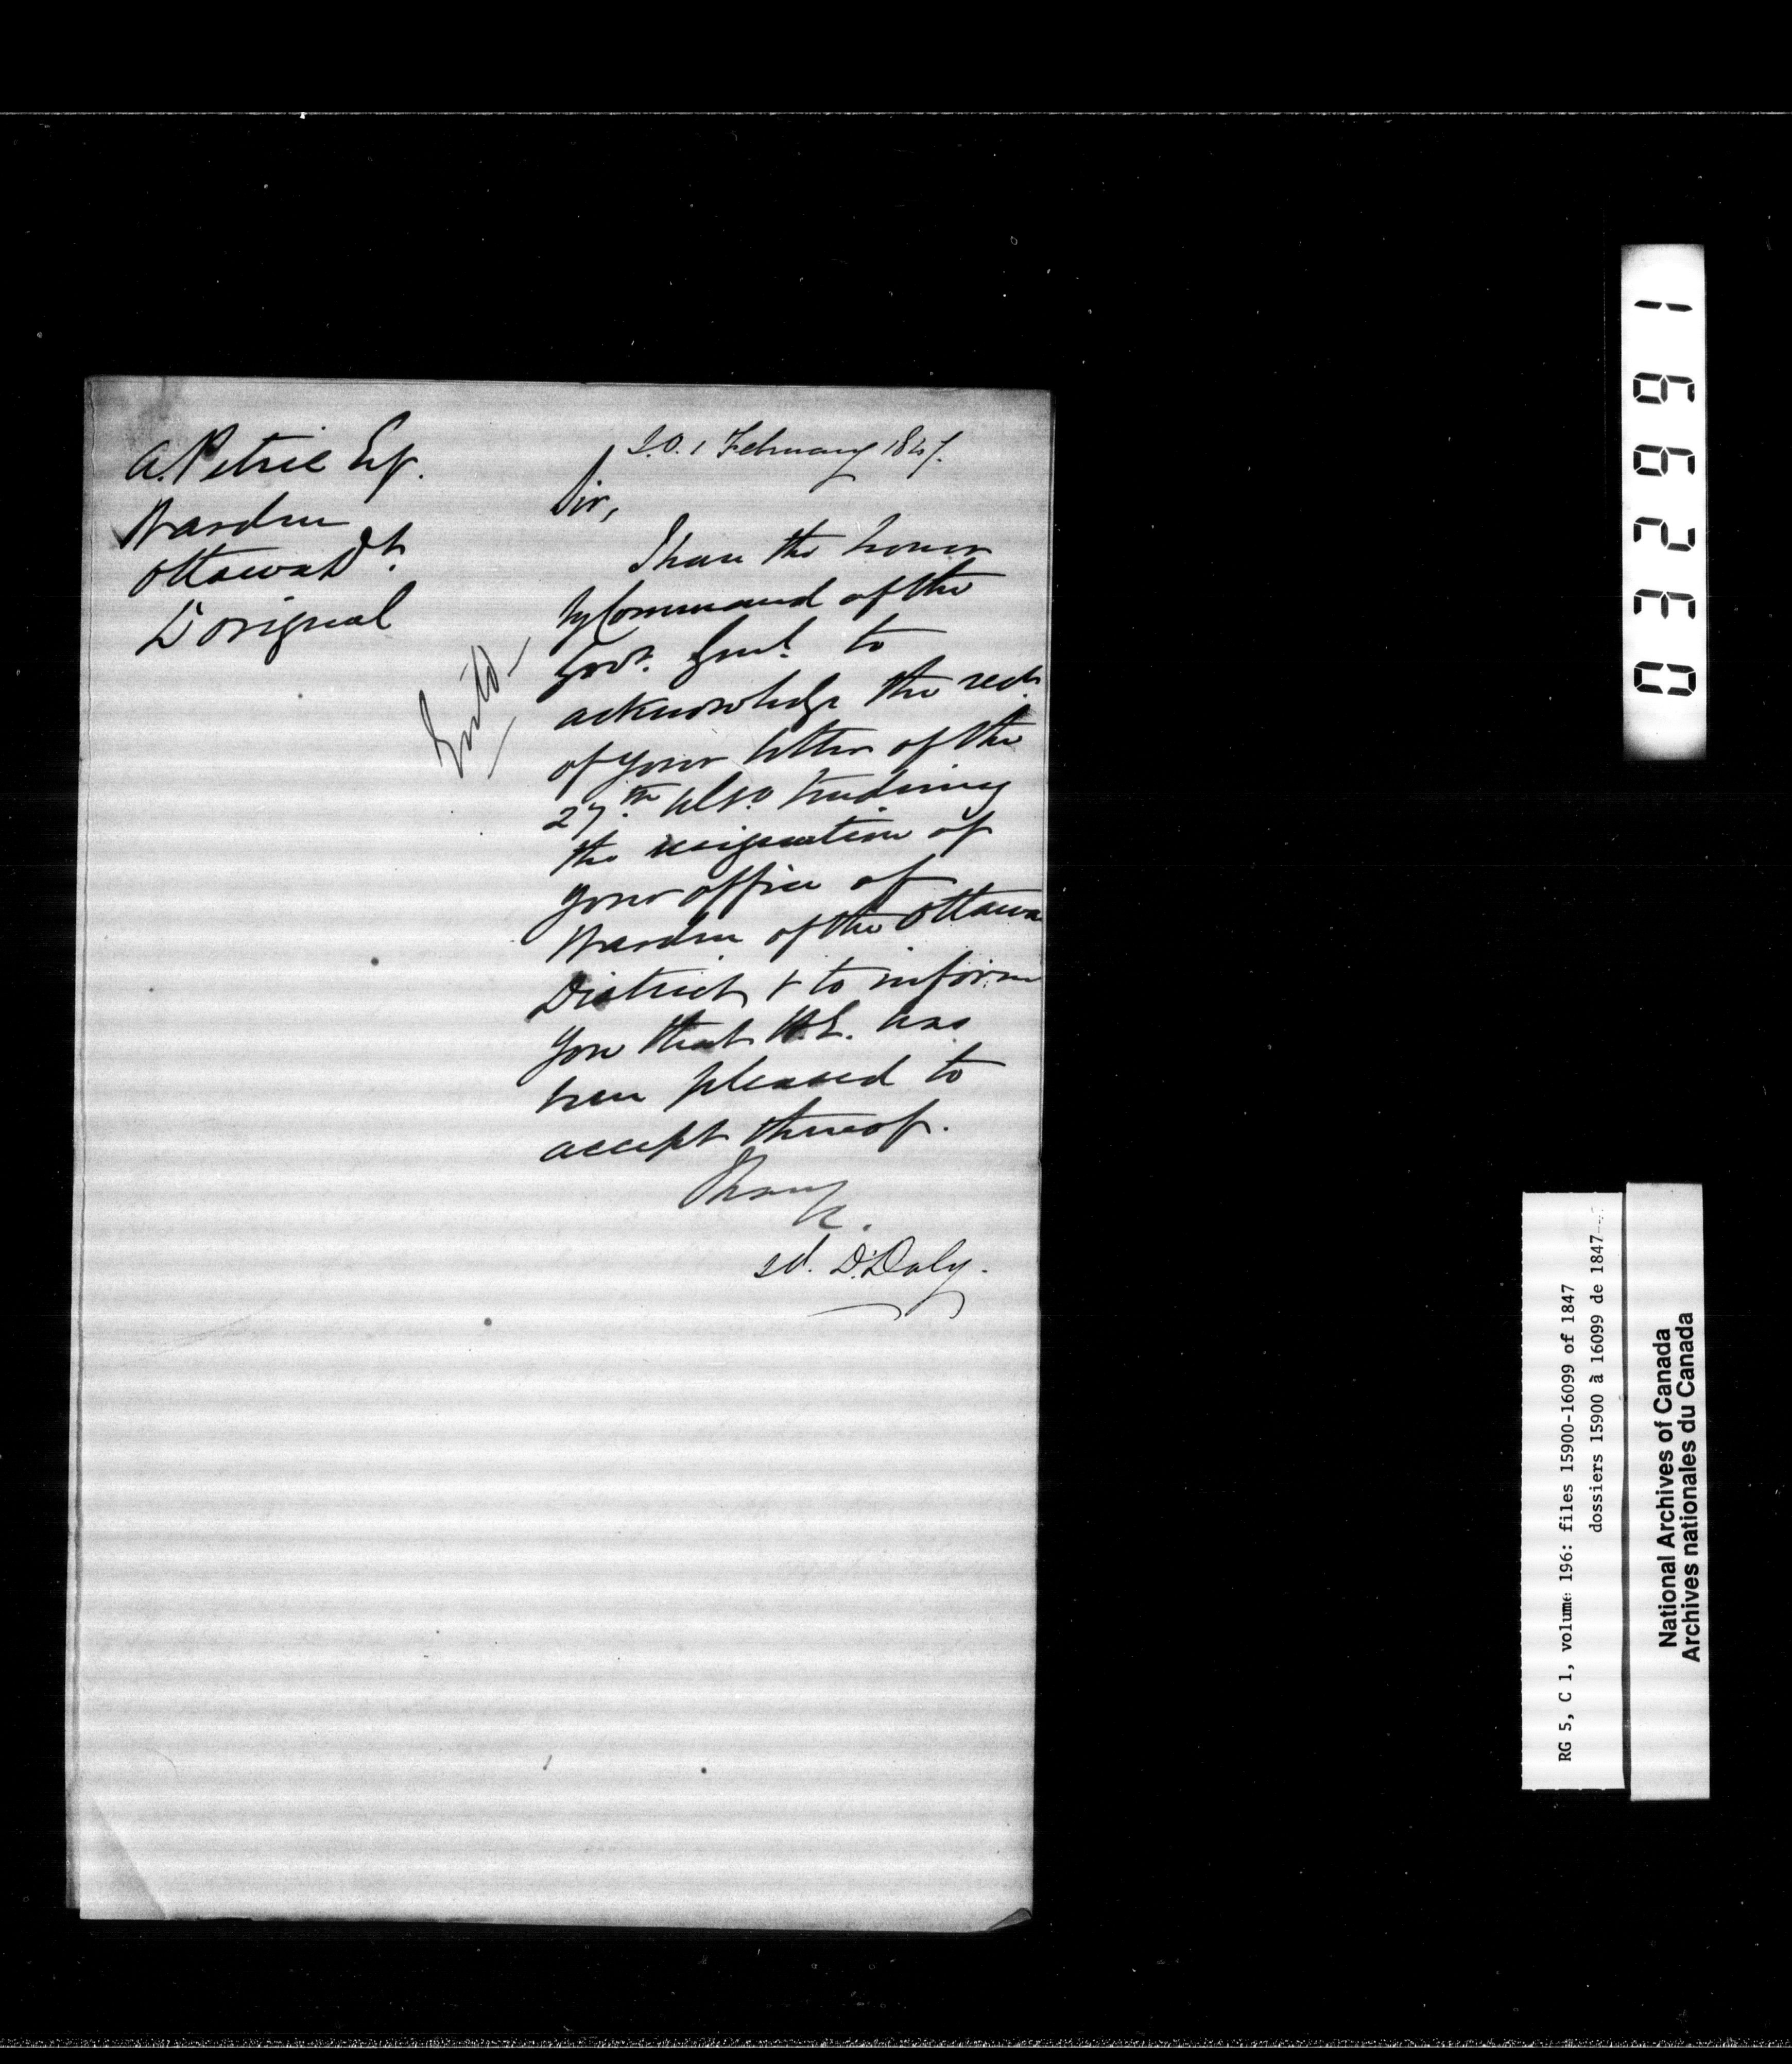 A. Petrie Esq.
Warden
Ottawa Dt.
L'orignal
Entd.
S.O. 1 February 1847.
Sir,
I have the honor
by Command of the
Govr. Genl. to
acknowledge the rect.
of your letter of the
27th ulto tendering
the resignation of
your office of
Warden of the Ottawa
District & to inform
you that H.E. has
been pleased to
accept thereof.
I have
&c.
sd. D. Daly.
032661
RG 5, C 1, volume 196: files 15900-16099 of 1847
dossiers 15900 à 16099 de 1847
National Archives of Canada
Archives nationales du Canada